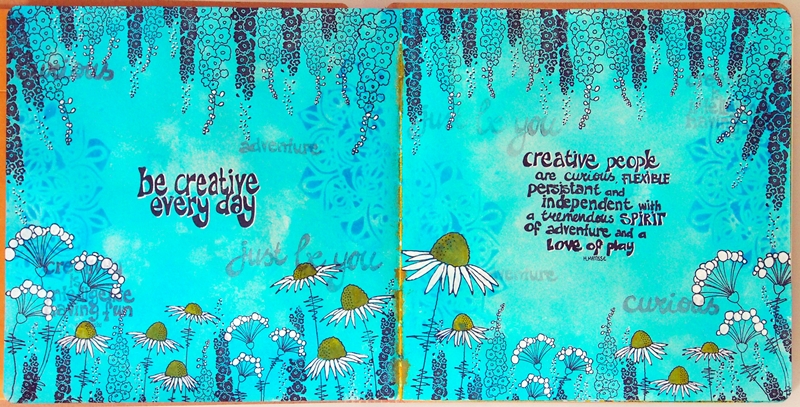 curious
adventure
be creative
every day
just be you
creativity
is
intelligence
having fun
just be you
creative people
are curious, FLEXIBLE
persistant and
independent with
a tremendous SPIRIT
of adventure and a
LOVE of PLAY
H.MATISSE
adventure
curious